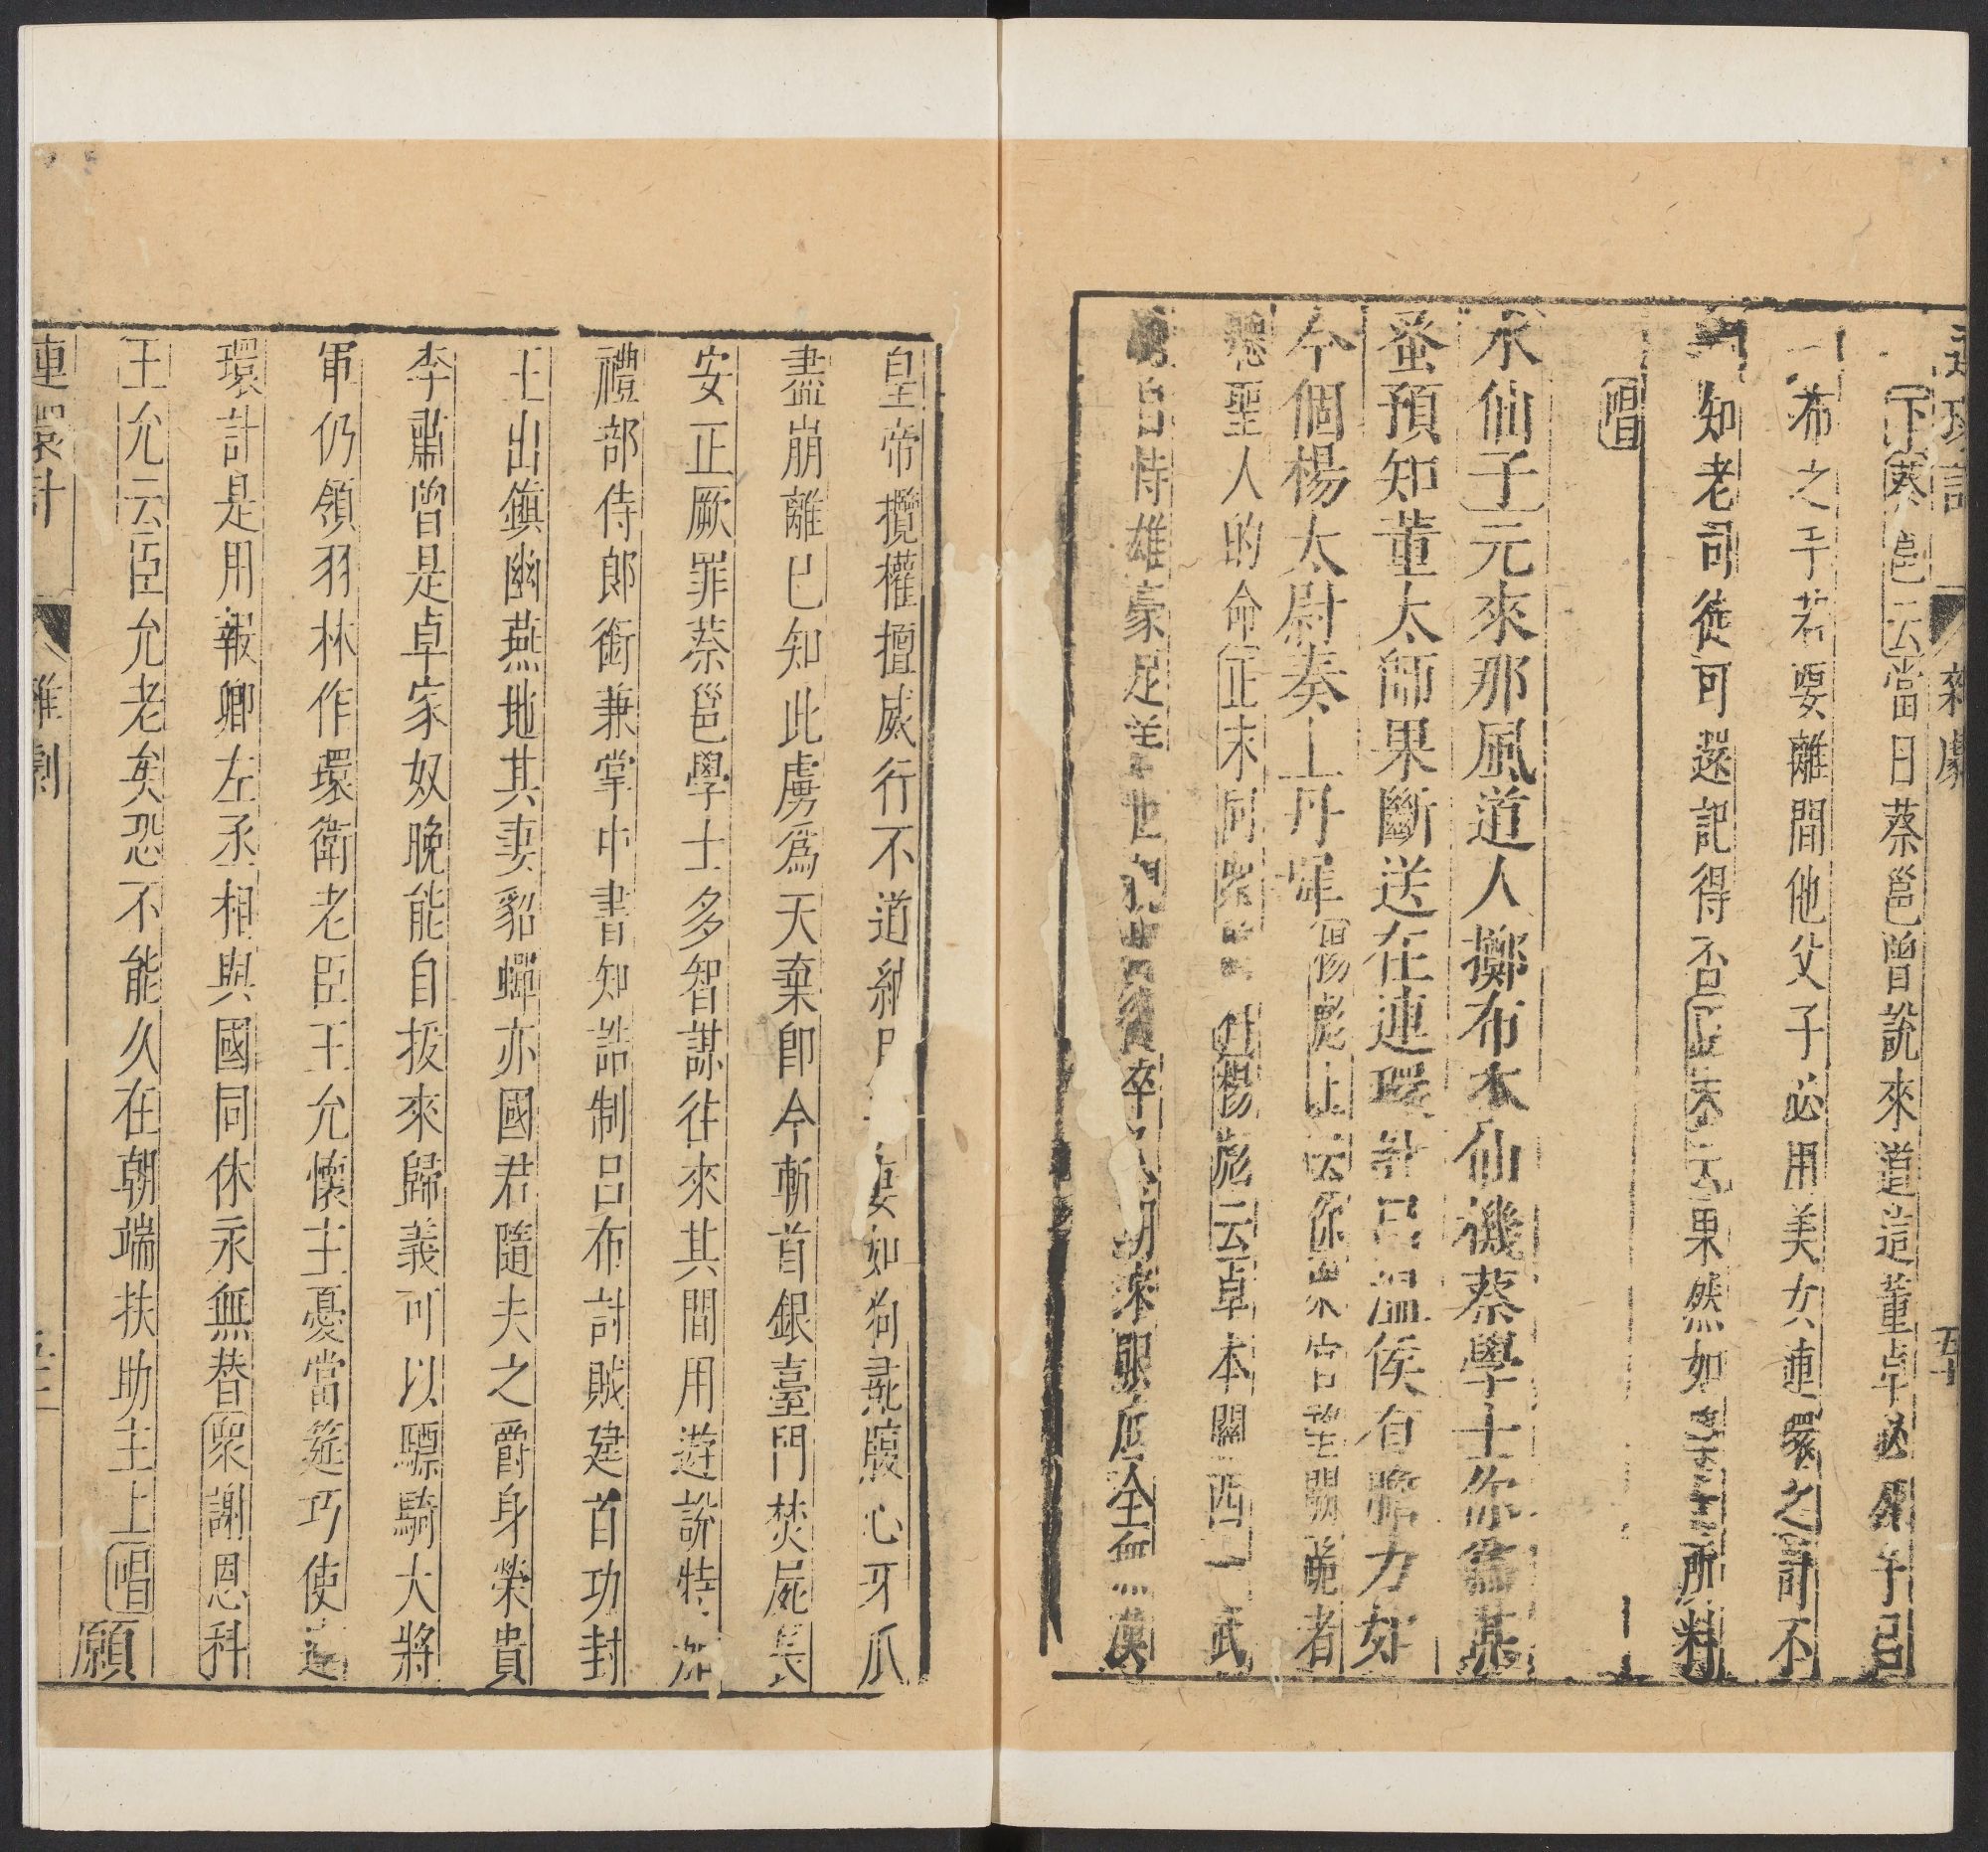 連環計 雜劇 五十
下蔡邕云當日蔡邕曾說來道這董卓必用于引
布之手若要離間他父子必用美女連環之計不
知老司徒可還記得否正末云果然如學士所料
唱
水仙子元來那風道人擲布本仙機蔡學士你為甚
蚤預知董太師果斷送在連環計呂溫侯有膽力如
今個楊太尉奏上丹墀楊彪上云你眾官望闕跪者
聽聖人的命正末同眾 科楊彪云卓本關西一武
自恃雄豪足 世 卒 朝來眼底全無漢
皇帝攬權擅威行不道納 妻如狗彘腹心牙爪
盡崩離已知此虜為天棄即今斬首銀臺門焚屍長
安正厥罪蔡邕學士多智謀往來其間用遊說特加
禮部侍郎銜兼掌中書知誥制呂布討賊建首功封
王出鎮幽燕地其妻貂蟬亦國君隨夫之爵身榮貴
李肅曾是卓家奴晚能自拔來歸義可以驃騎大將
軍仍領羽林作環衛老臣王允懷主憂當筵巧使連
環計是用報卿左丞相與國同休永無替眾謝恩科
王允云臣允老矣恐不能久在朝端扶助主上唱願
連環計 雜劇